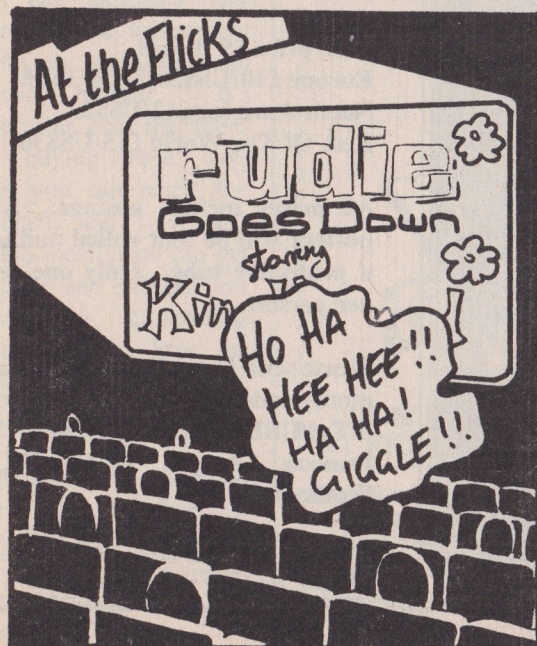 At the Flicks
rudie
Goes Down
starring
Kin
HO HA
HEE HEE!!
HA HA!
GIGGLE!!